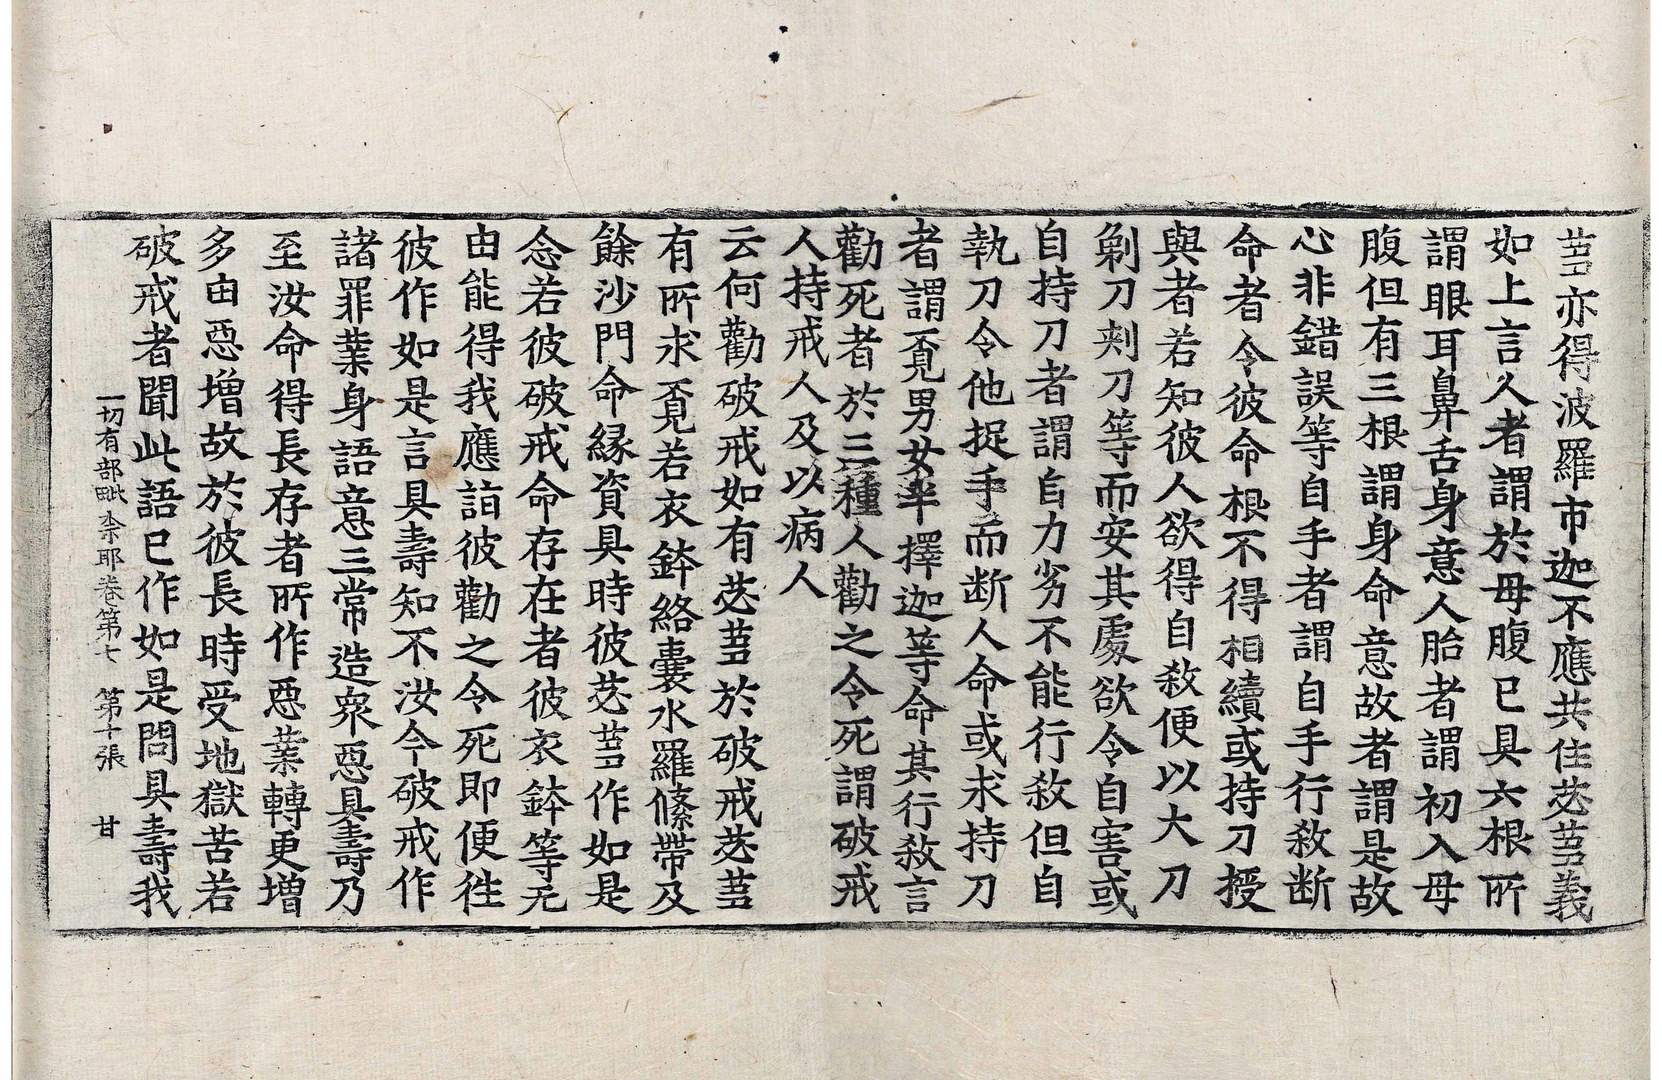 苾亦得波羅市迦不應共住苾芻義
如上言人者謂於母腹已具六根所
謂眼耳鼻舌身意人胎者謂初入母
腹但有三根謂身命意故者謂是故
心非錯誤等自手者謂自手行敎断
命者令彼命根不得相續或持刀授
與者若知彼人欲得自敎便以大刀
剃刀刾刀等而安其處欲令自害或
自持刀者謂自力劣不能行敎但自
執刀令他捉手而断人命或求持刀
者謂覔男女半擇迦等命其行敎言
勸死者於三種人勸之令死謂破戒
人持戒人及以病人
云何勸破戒如有苾芻於破戒苾芻
有所求覔若衣鉢絡囊水羅絛帶及
餘沙門命緣資具時彼苾芻作如是
念若彼破戒命存在者彼衣鉢等无
由能得我應詣彼勸之令死即便徃
彼作如是言具壽知不汝今破戒作
諸罪業身語意三常造衆惡具壽乃
至汝命得長存者所作惡業轉更增
多由惡增故於彼長時受地獄苦若
破戒者聞此語已作如是問具壽我
一切有部毗奈耶卷第七　第十張　甘